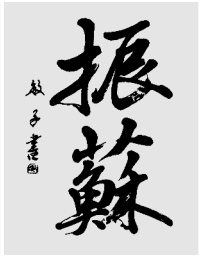 振蘇
敏子書